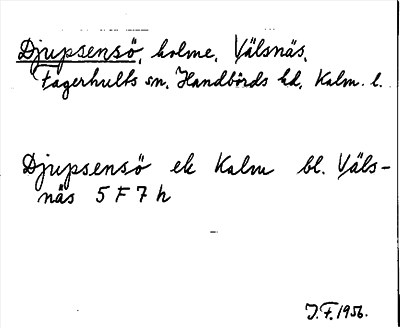 Djupsensö, holme, Välsnäs,
Fagerhults sn, Handbörds hd, Kalm. l.
Djupsensö ek Kalm bl. Väls-
näs 5 F 7 h
J.F. 1956.